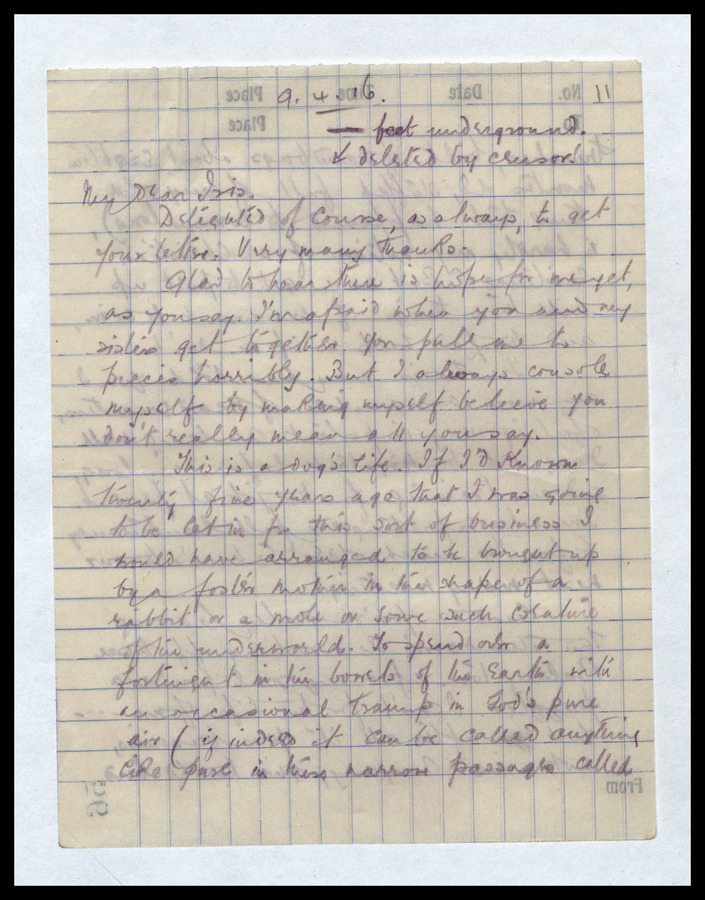 9. 4. 16. 11
— feet underground.
↙ deleted by censor!
My Dear Isis.
Delighted of course, as always, to get
your letter. Very many thanks.
Glad to hear there is hope for me yet,
as you say. I'm afraid when you and my
sisters get together you pull me to
pieces horribly. But I always console
myself by making myself believe you
don't really mean all you say.
This is a dog's life. If I'd known
twenty five years ago that I was going
to be let in for this sort of business I
would have arranged to be brought up
by a foster mother in the shape of a
rabbit or a mole or some such creature
of the underworld. To spend over a
fortnight in the bowels of the Earth with
an occasional tramp in God's pure
air (if indeed it can be called anything
like pure in these narrow passages called